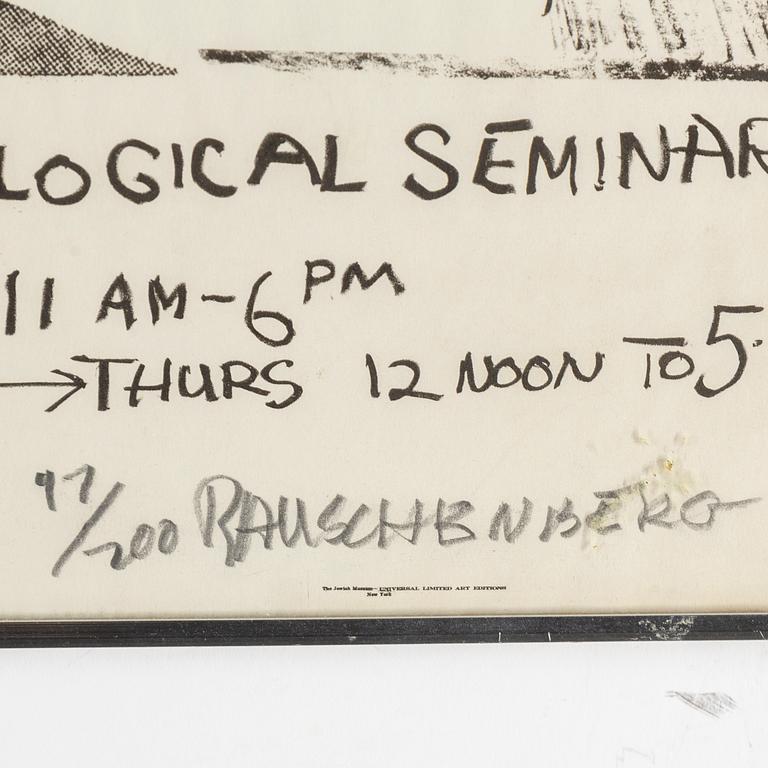 LOGICAL SEMINAR
11 AM-6 PM
→THURS 12 NOON TO 5.
97/200 RAUSCHENBERG
The Jewish Museum—UNIVERSAL LIMITED ART EDITIONS
New York